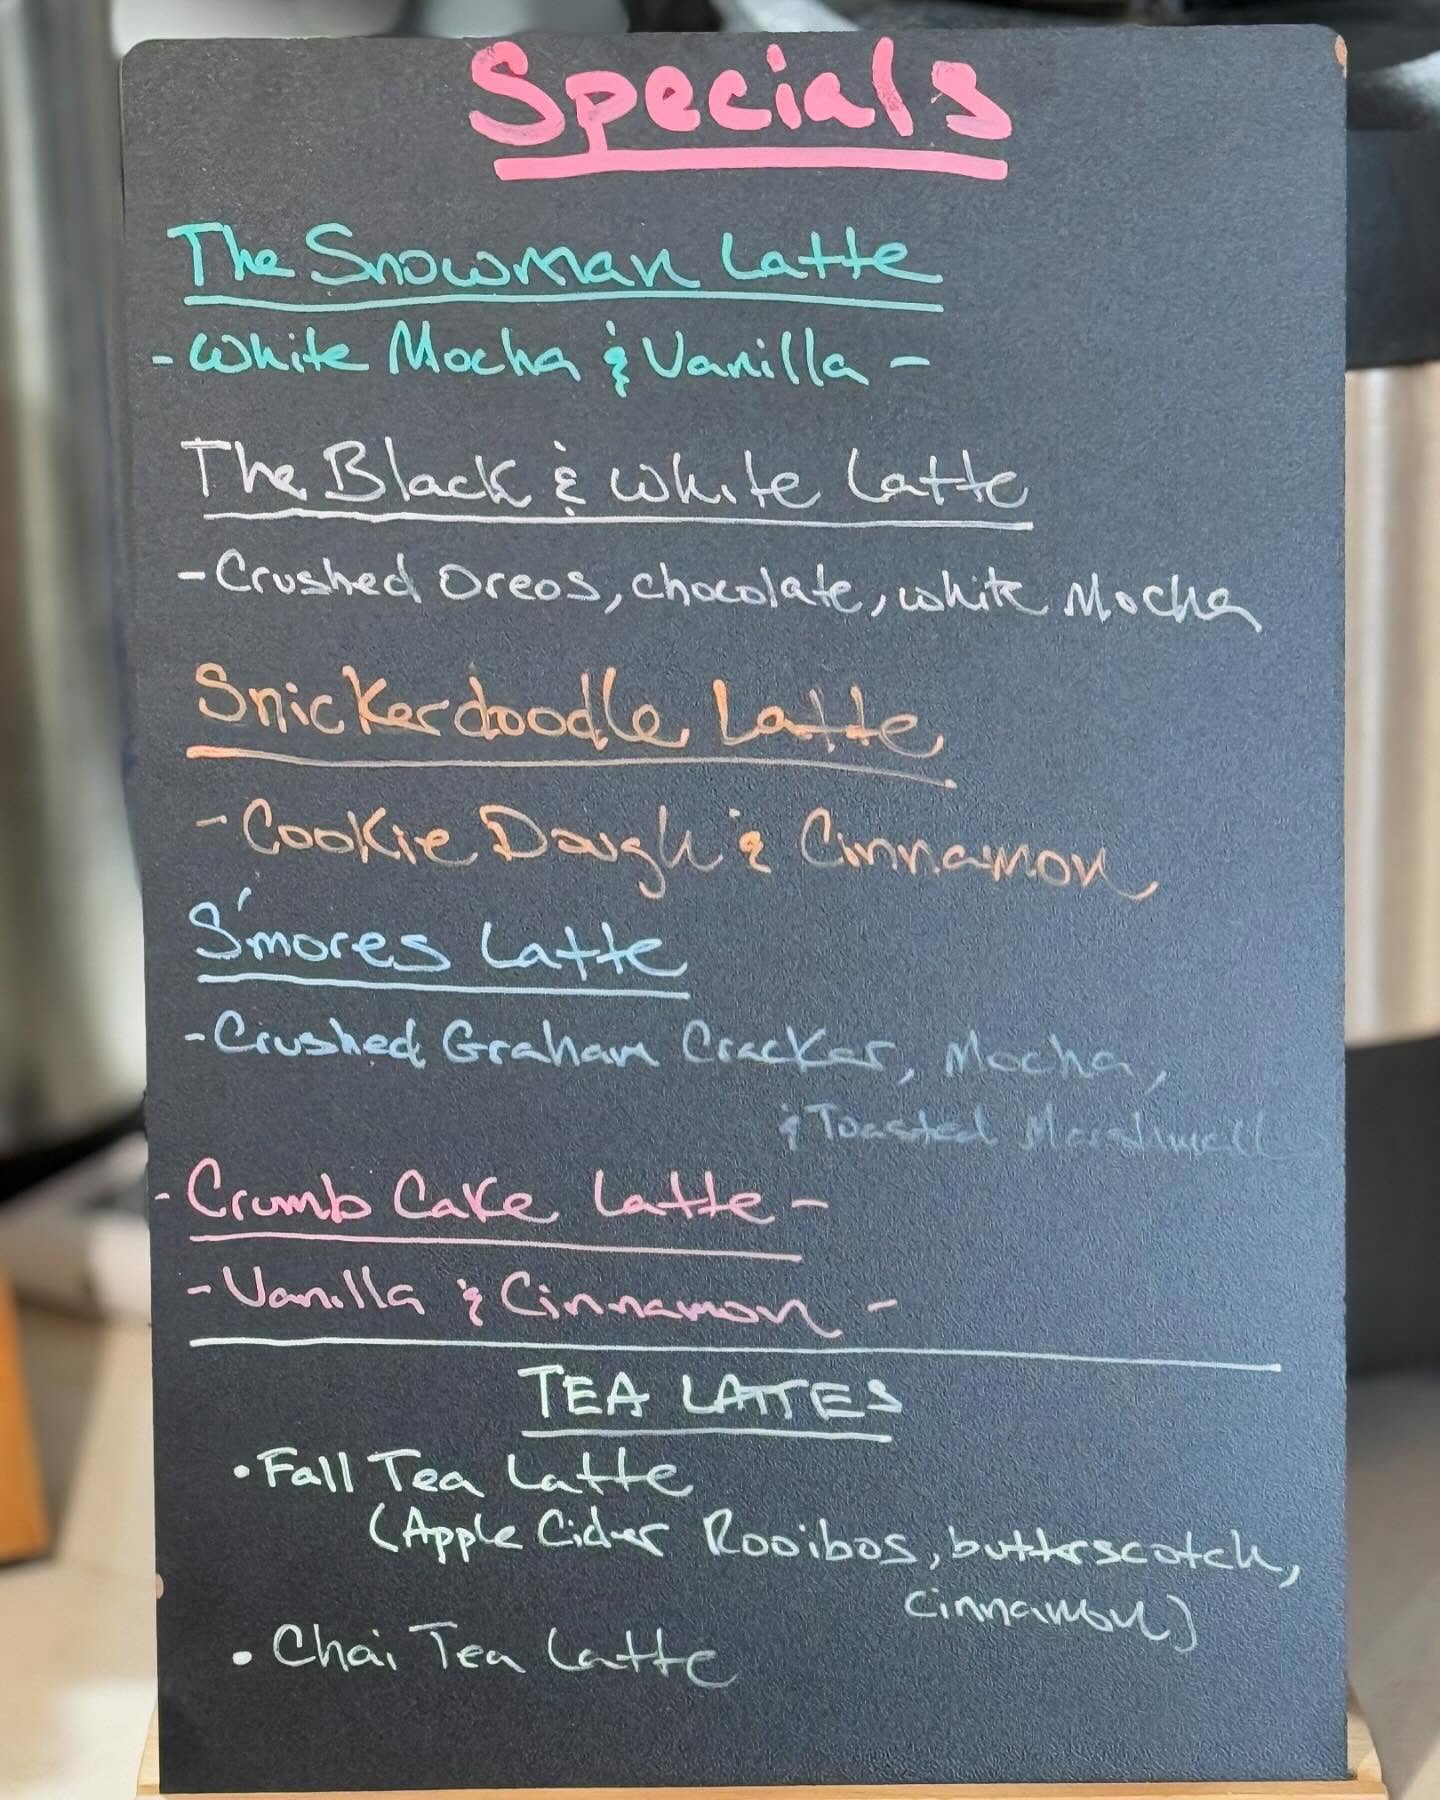 Specials
The Snowman Latte
- White Mocha & Vanilla -
The Black & White Latte
- Crushed Oreos, chocolate, white Mocha
Snickerdoodle Latte
- Cookie Dough & Cinnamon
S'mores Latte
- Crushed Graham Cracker, Mocha,
& Toasted Marshmallow
- Crumb Cake Latte -
- Vanilla & Cinnamon -
TEA LATTES
• Fall Tea Latte
(Apple Cider Rooibos, butterscotch,
cinnamon)
• Chai Tea Latte